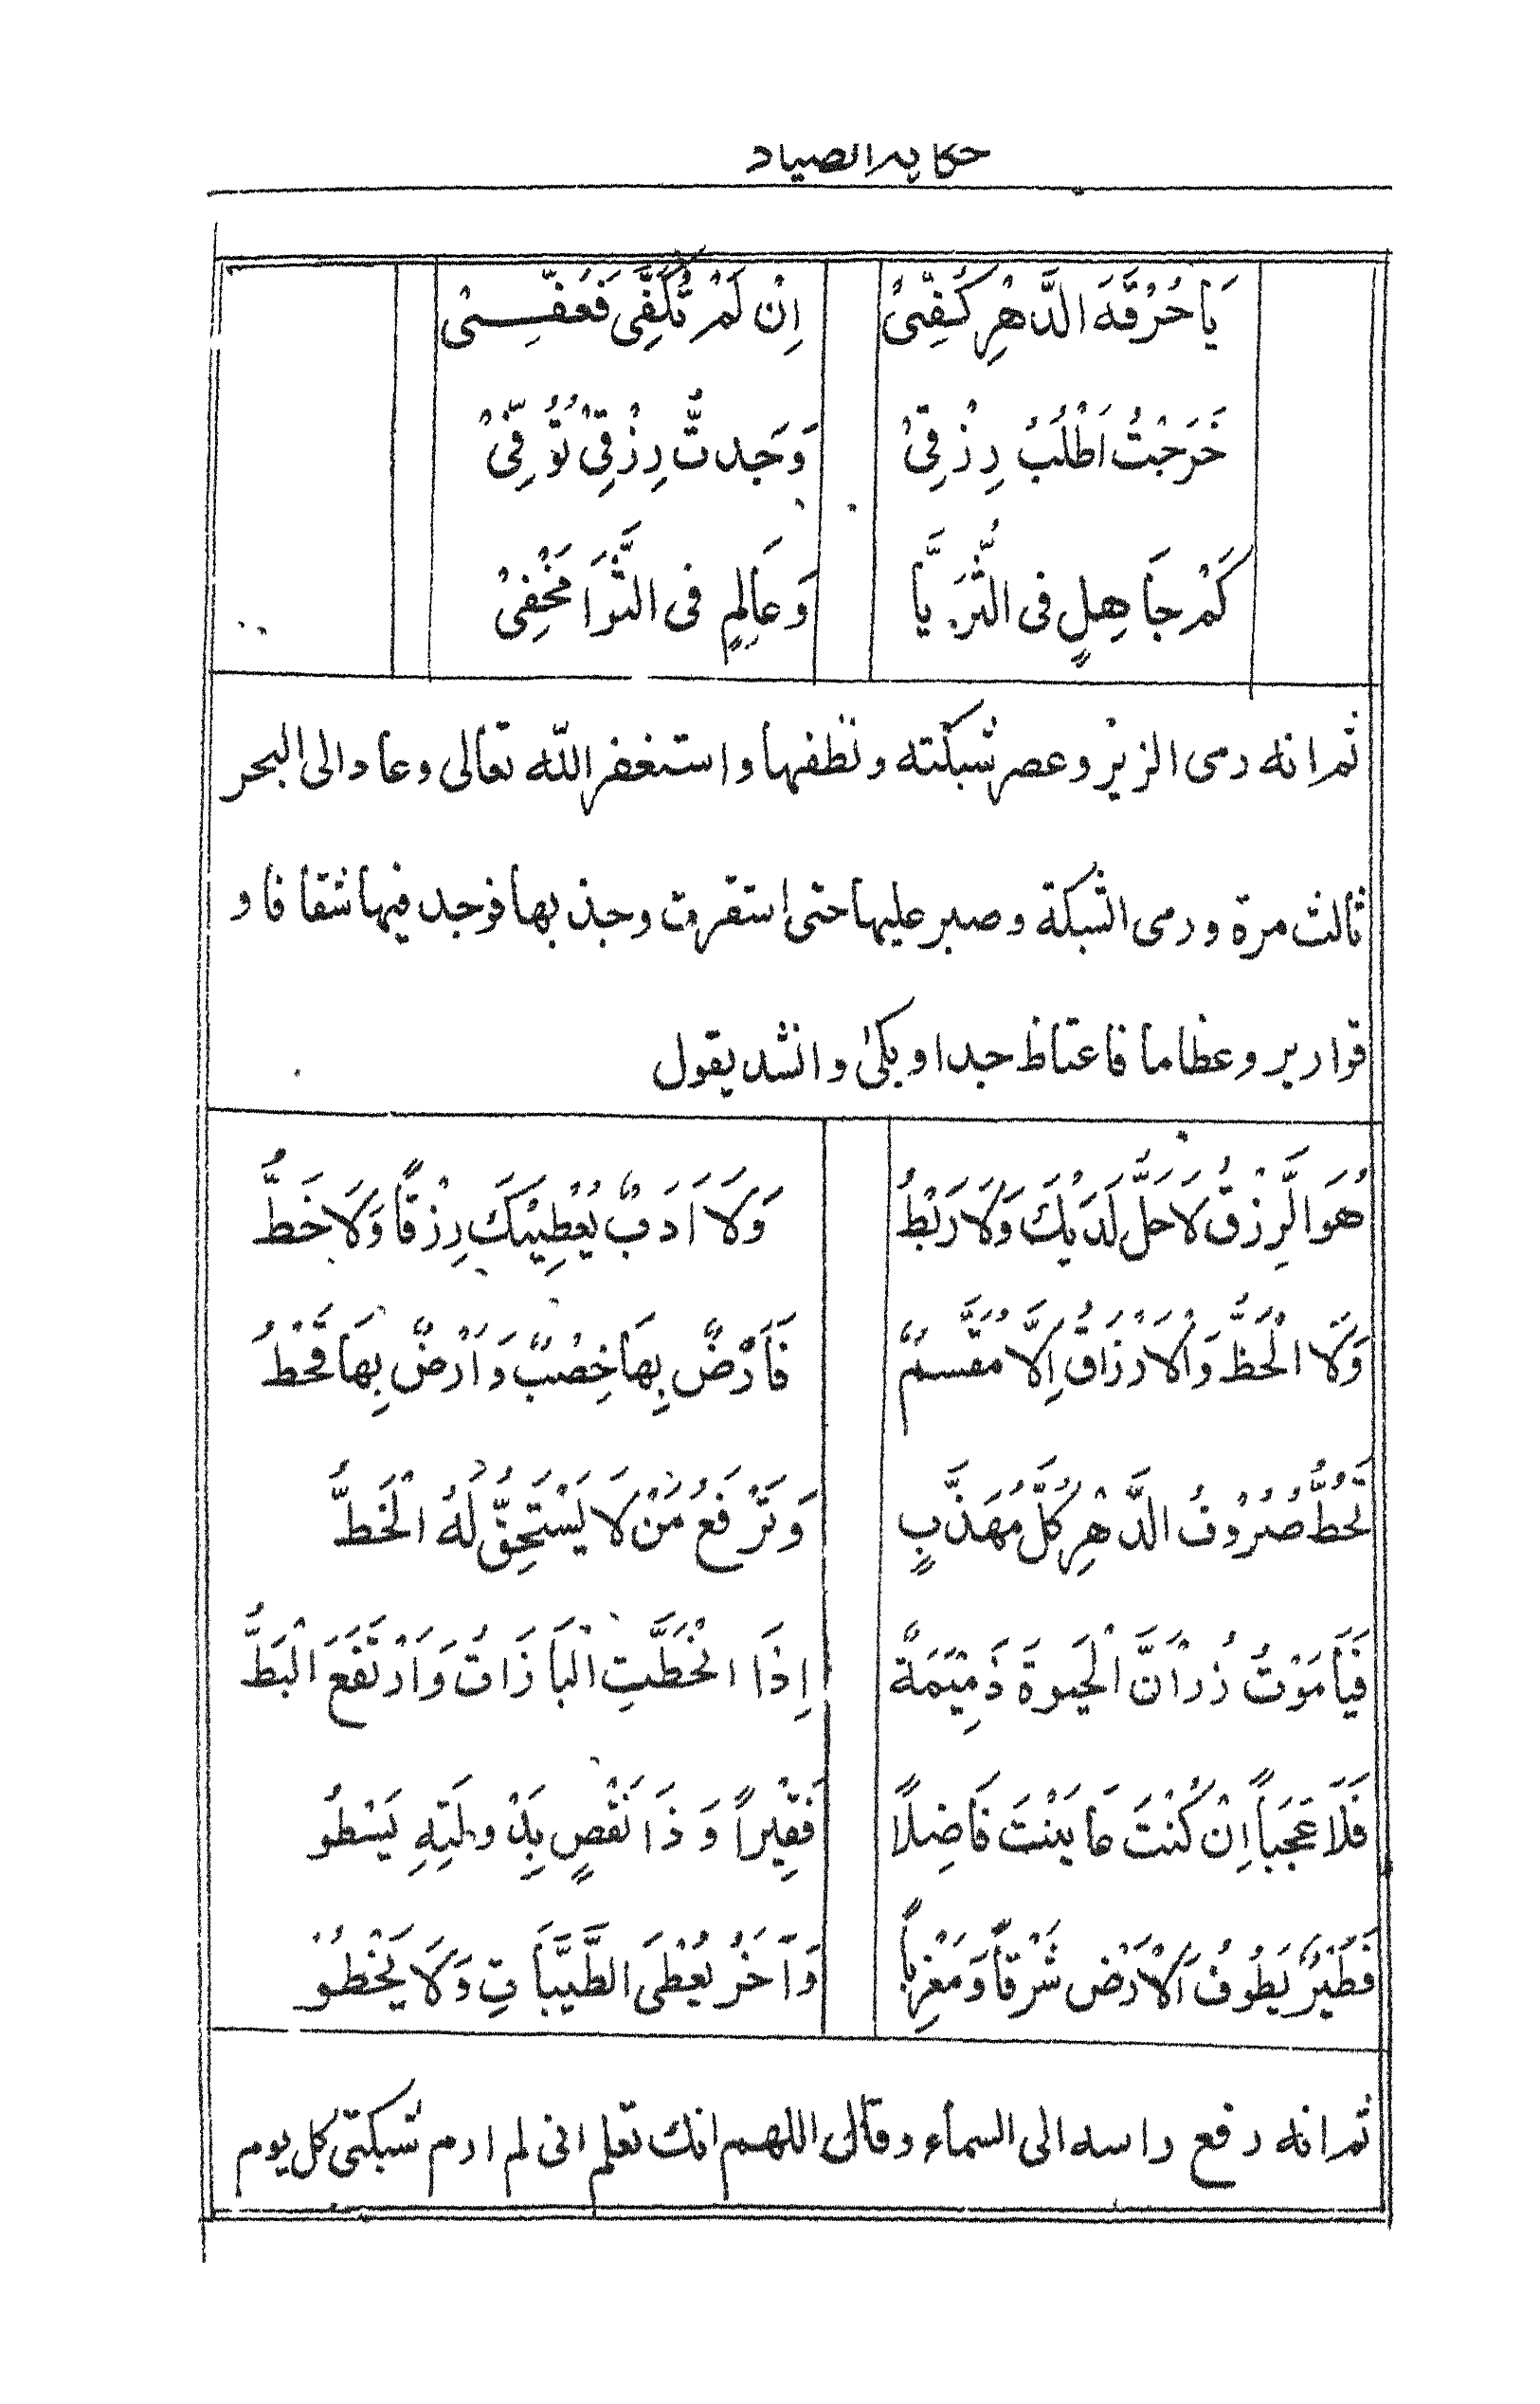 حكاية الصياد
يَا حُرْقَةَ الدَّهْرِ كُفِّيْ اِنْ لَمْ تَكُفِّى فَعَفِّــىْ
خَرَجْتُ اَطْلُبُ رِزْقِىْ وَجَدتُّ رِزْقِىْ تُوُفِّىْ
كَمْ جَاهِلٍ فى الثُّرَيَّا وَعَالِمٍ فى الثَّرَا مَخْفِىْ
ثم انه رمى الزير وعصر شبكته ونظفها واستغفر الله تعالى وعاد الى البحر
ثالث مرة ورمى الشبكة وصبر عليها حتى استقرت وجذبها فوجد فيها شقافا و
قوارير وعظاما فاغتاظ جدا وبكىٰ وانشد يقول
هُوَ الرِّزْقُ لَا حَلَّ لَدَيْكَ وَلَا رَبْطُ وَلَا اَدَبٌ يُعْطِيْكَ رِزْقًا وَلَا خَطُّ
وَلَا الْحَظُّ وَالْاَرْزَاقُ اِلَّا مُقَسَّمٌ فَاَرْضٌ بِهَا خِصْبٌ وَاَرْضٌ بِهَا قَحْطُ
تَحُطُّ صُرُوْفُ الدَّهْرِ كُلَّ مُهَذَّبٍ وَتَرْفَعُ مَنْ لَا يَسْتَحِقُّ لَهُ الْخَطُّ
فَيَا مَوْتُ زُرْ اَنَّ الْحَيٰوةَ ذَمِيْمَةٌ اِذَا انْحَطَّتِ الْبَازَاتُ وَارْتَفَعَ الْبَطُّ
فَلَا عَجَباً اِنْ كُنْتَ عَايَنْتَ فَاضِلًا فَقِيْراً وَذَا نَقْصٍ بِدْولَتِهِ يَسْطُو
فَطَيْرٌ يَطُوفُ الْاَرْضَ شَرْقاً وَمَغْرِباً وَآخَرُ يُعْطَى الطَّيِّبَاتِ وَلَا يَخْطُو
ثم انه رفع راسه الى السماء وقال اللهم انك تعلم انى لم ارم شبكتى كل يوم